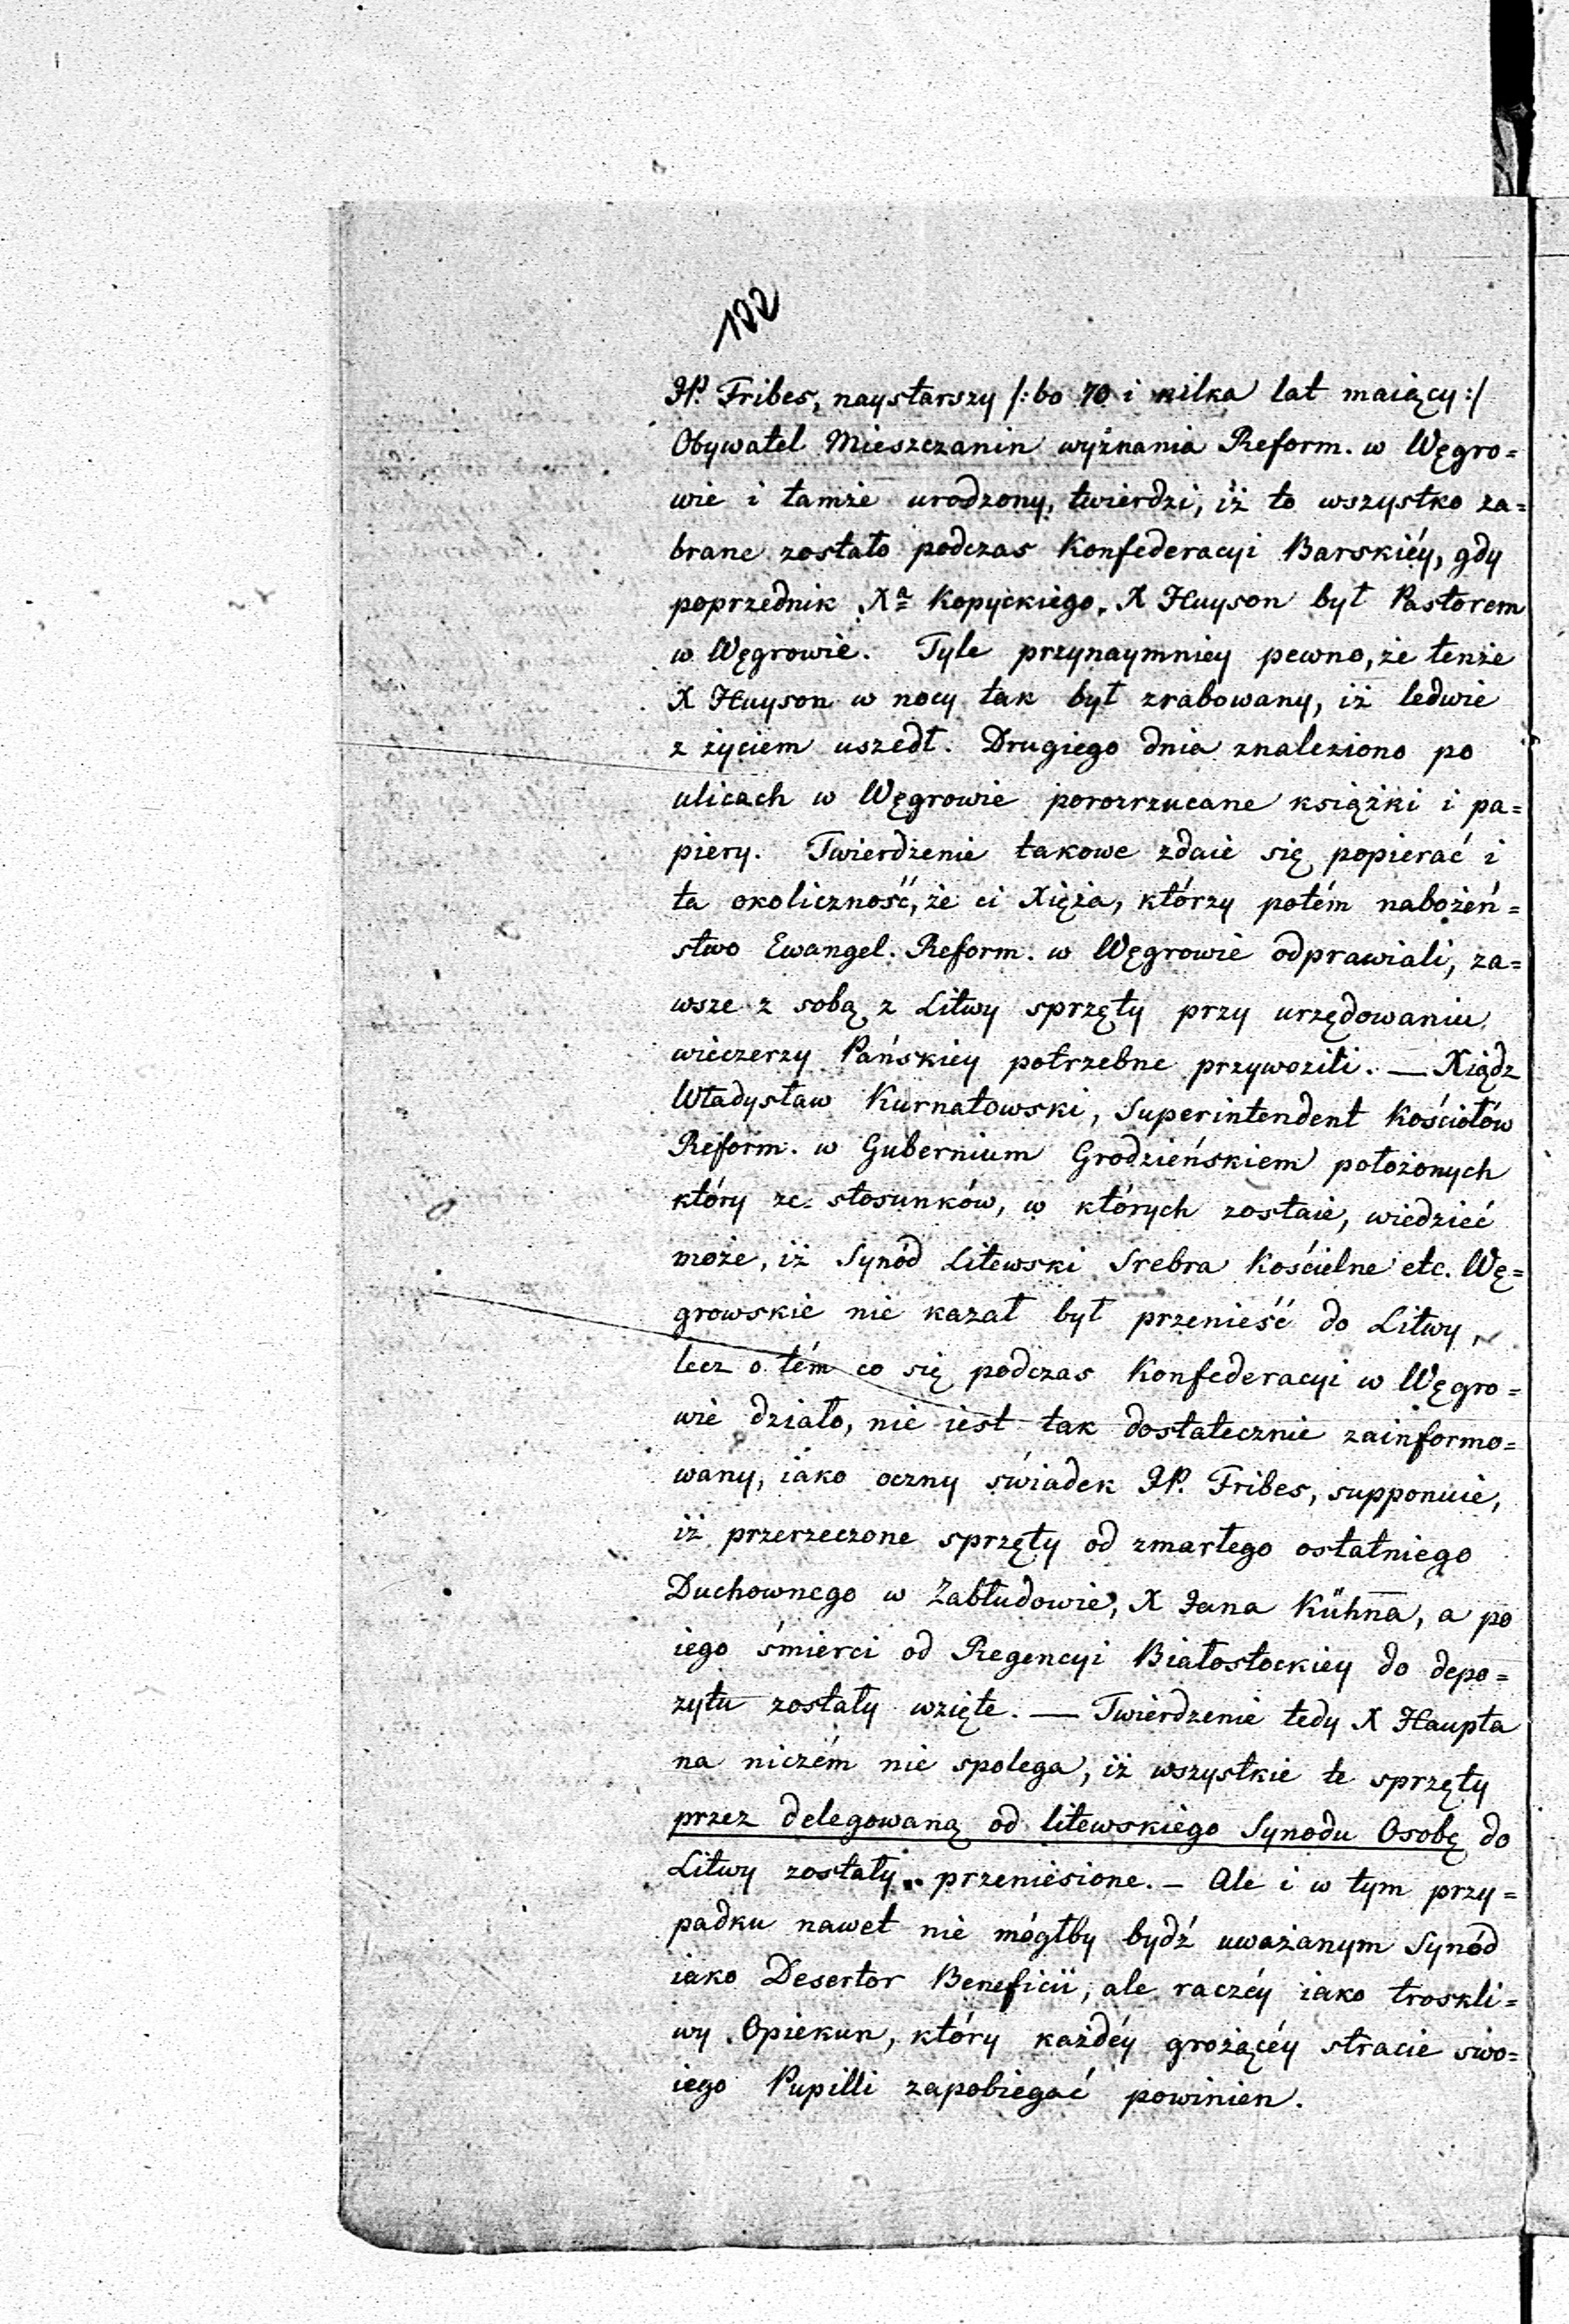 122
JP. Fribes, naystarszy /:bo 70 i kilka lat maiący:/
Obywatel Mieszczanin wyznania Reform. w Węgro=
wie i tamże urodzony, twierdzi, iż to wszystko za=
brane zostało podczas Konfederacyi Barskiéy, gdy
poprzednik Xa Kopyckiego, X Huyson był Pastorem
w Węgrowie. Tyle przynaymniey pewno, że tenże
X Huyson w nocy tak był zrabowany, iż ledwie
z życiem uszedł. Drugiego dnia znaleziono po
ulicach w Węgrowie porozrzucane książki i pa=
piery. Twierdzenie takowe zdaie się popierać i
ta okoliczność, że ci Xięża, którzy potém nabożeń=
stwo Ewangel. Reform. w Węgrowie odprawiali, za=
wsze z sobą z Litwy sprzęty przy urzędowaniu
wieczerzy Pańskiey potrzebne przywozili. — Xiądz
Władysław Kurnatowski, Superintendent Kościołów
Reform. w Gubernium Grodzieńskiem położonych
który ze stosunków, w których zostaie, wiedzieć
może, iż Synód Litewski Srebra Kościelne etc. Wę=
growskie nie kazał był przenieść do Litwy,
lecz o tém co się podczas Konfederacyi w Węgro=
wie działo, nie iest tak dostatecznie zainformo=
wany, iako oczny świadek JP. Fribes, supponuie,
iż przerzeczone sprzęty od zmarłego ostatniego
Duchownego w Zabłudowie, X Jana Kühna, a po
iego śmierci od Regencyi Białostockiey do depo=
zytu zostały wzięte. — Twierdzenie tedy X Haupta
na niczém nie spolega, iż wszystkie te sprzęty
przez delegowaną od litewskiego Synodu Osobę do
Litwy zostały przeniesione. — Ale i w tym przy=
padku nawet nie mógłby bydź uważanym Synód
iako Desertor Beneficii, ale raczéy iako troskli=
wy Opiekun, który każdéy grożącéy stracie swo=
iego Pupilli zapobiegać powinien.